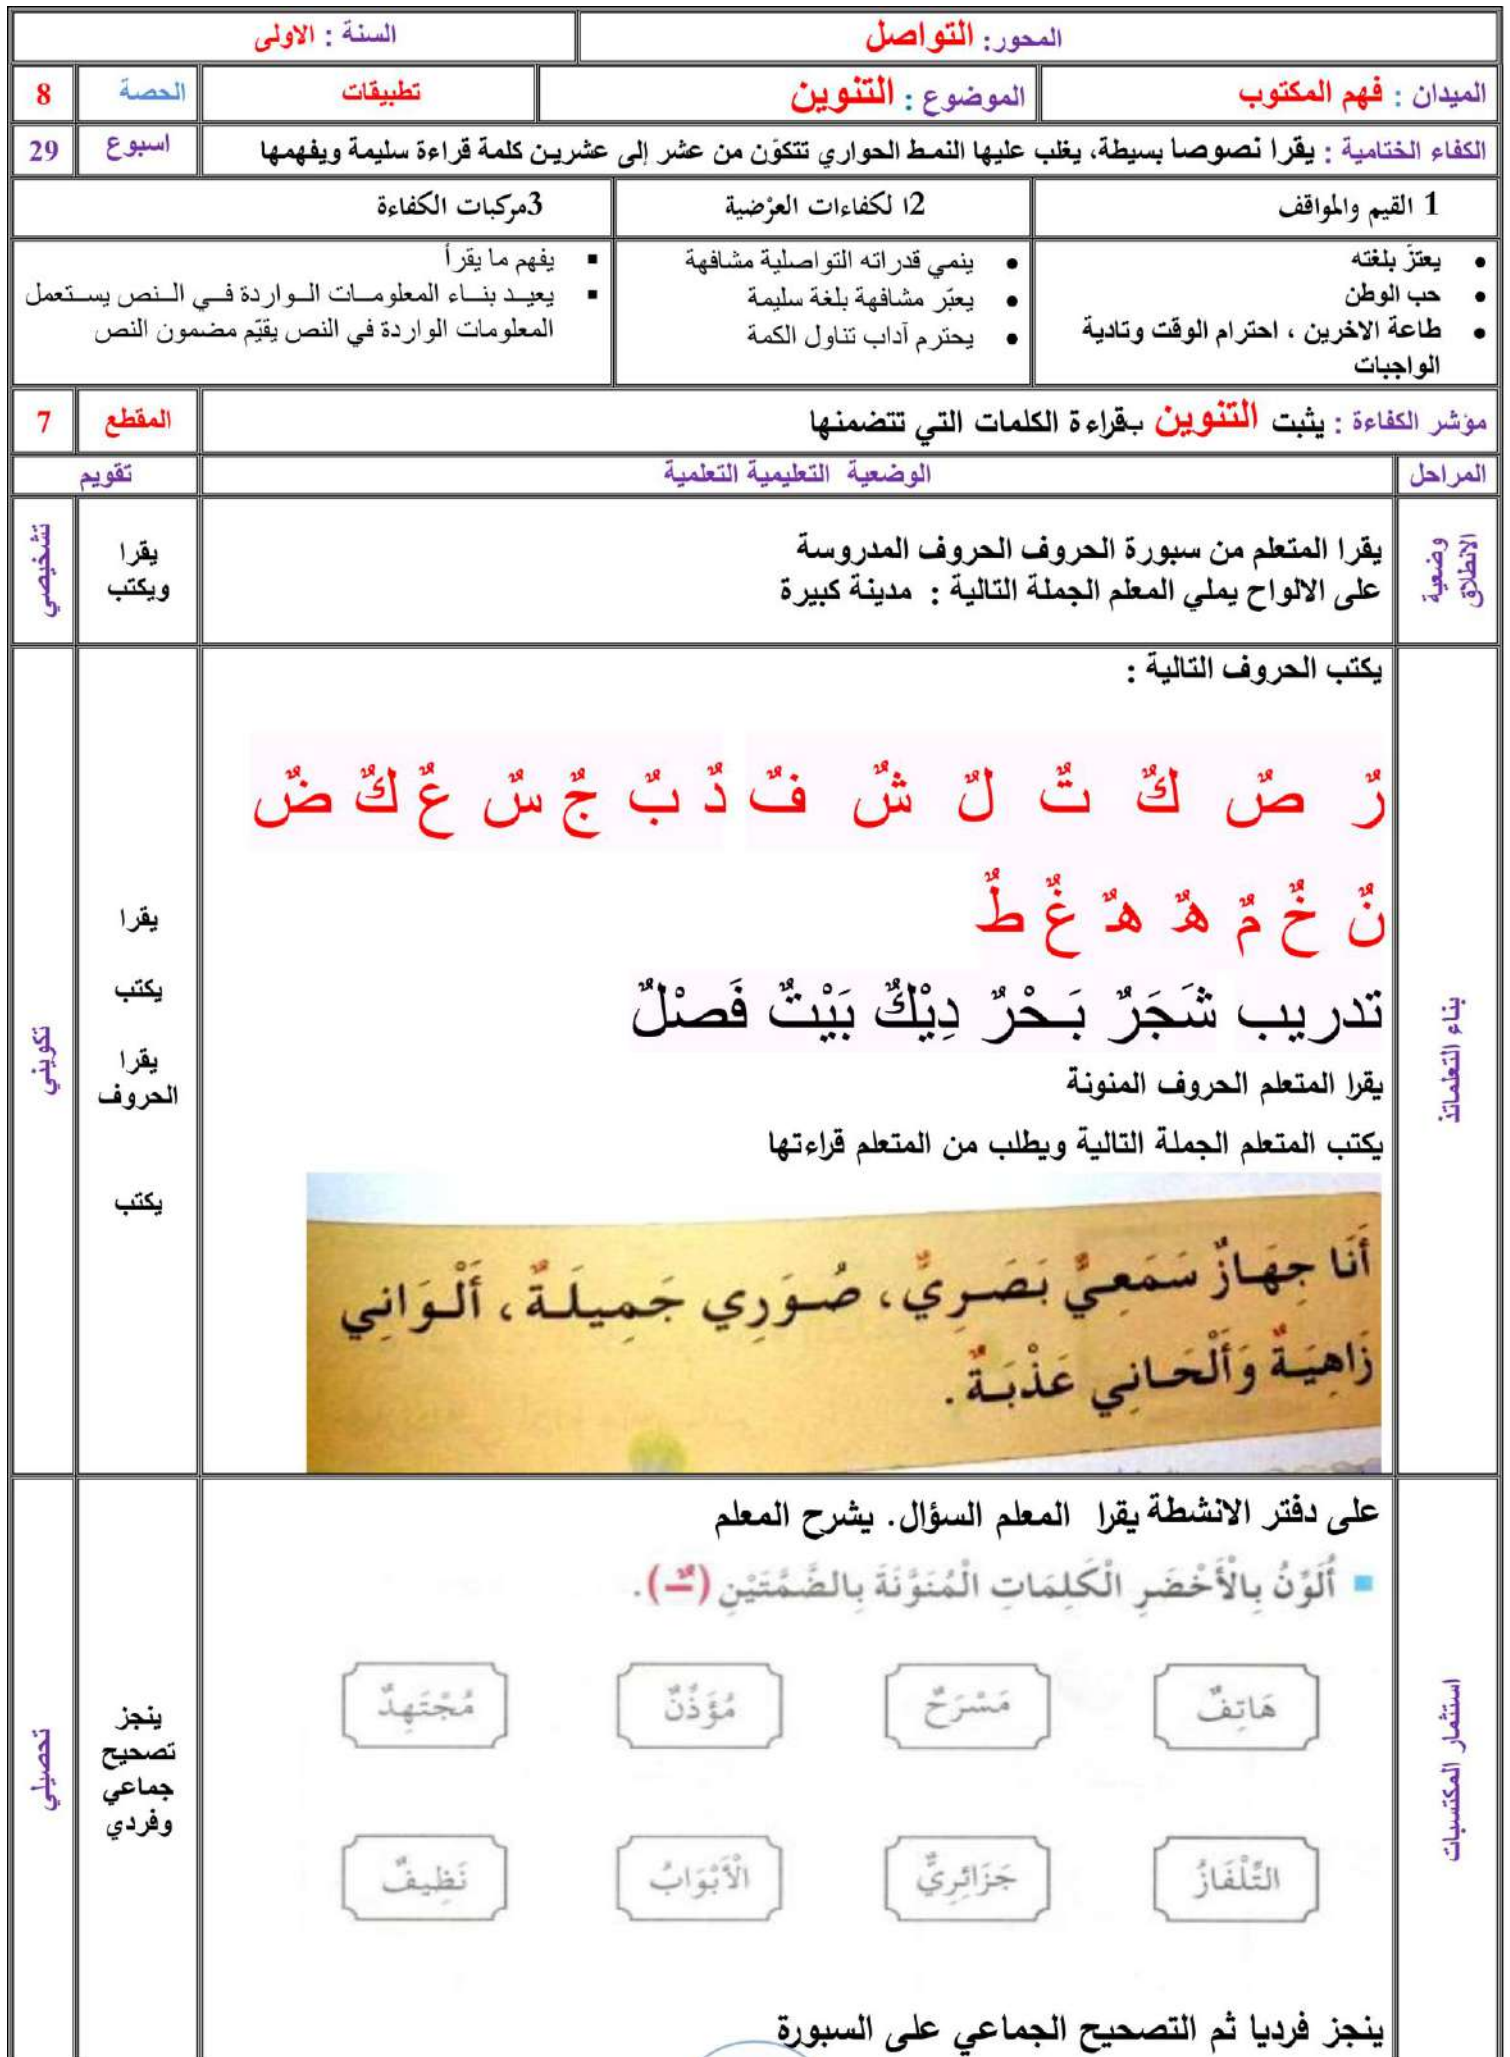 المحور: التواصل
السنة : الاولى
الميدان : فهم المكتوب
الموضوع : التنوين
تطبيقات
الحصة
8
الكفاء الختامية : يقرا نصوصا بسيطة، يغلب عليها النمط الحواري تتكوّن من عشر إلى عشرين كلمة قراءة سليمة ويفهمها
اسبوع
29
1 القيم والمواقف
2ا لكفاءات العرْضية
3مركبات الكفاءة
• يعتزّ بلغته
• حب الوطن
• طاعة الاخرين ، احترام الوقت وتادية
الواجبات
• ينمي قدراته التواصلية مشافهة
• يعبّر مشافهة بلغة سليمة
• يحترم آداب تناول الكمة
▪ يفهم ما يقرأ
▪ يعيد بناء المعلومات الواردة في النص يستعمل
المعلومات الواردة في النص يقيّم مضمون النص
مؤشر الكفاءة : يثبت التنوين بقراءة الكلمات التي تتضمنها
المقطع
7
المراحل
الوضعية التعليمية التعلمية
تقويم
وضعية
الانطلاق
يقرا المتعلم من سبورة الحروف الحروف المدروسة
على الالواح يملي المعلم الجملة التالية : مدينة كبيرة
يقرا
ويكتب
تشخيصي
بناء التعلماتذ
يكتب الحروف التالية :
رٌ صٌ كٌ تٌ لٌ شٌ فٌ دٌ بٌ جٌ سٌ عٌ كٌ ضٌ
نٌ خٌ مٌ هٌ هٌ غٌ طٌ
تدريب شَجَرٌ بَحْرٌ دِيْكٌ بَيْتٌ فَصْلٌ
يقرا المتعلم الحروف المنونة
يكتب المتعلم الجملة التالية ويطلب من المتعلم قراءتها
أَنَا جِهَازٌ سَمَعِيٌّ بَصَرِيٌّ، صُوَرِي جَمِيلَةٌ، أَلْوَانِي
زَاهِيَةٌ وَأَلْحَانِي عَذْبَةٌ.
يقرا
يكتب
يقرا
الحروف
يكتب
تكويني
استثمار المكتسبات
على دفتر الانشطة يقرا المعلم السؤال. يشرح المعلم
▪ أُلَوِّنُ بِالْأَخْضَرِ الْكَلِمَاتِ الْمُنَوَّنَةَ بِالضَّمَّتَيْنِ (ـٌ).
هَاتِفٌ
مَسْرَحٌ
مُؤَذِّنٌ
مُجْتَهِدٌ
التِّلْفَازُ
جَزَائِرِيٌّ
الْأَبْوَابُ
نَظِيفٌ
ينجز فرديا ثم التصحيح الجماعي على السبورة
ينجز
تصحيح
جماعي
وفردي
تحصيلي